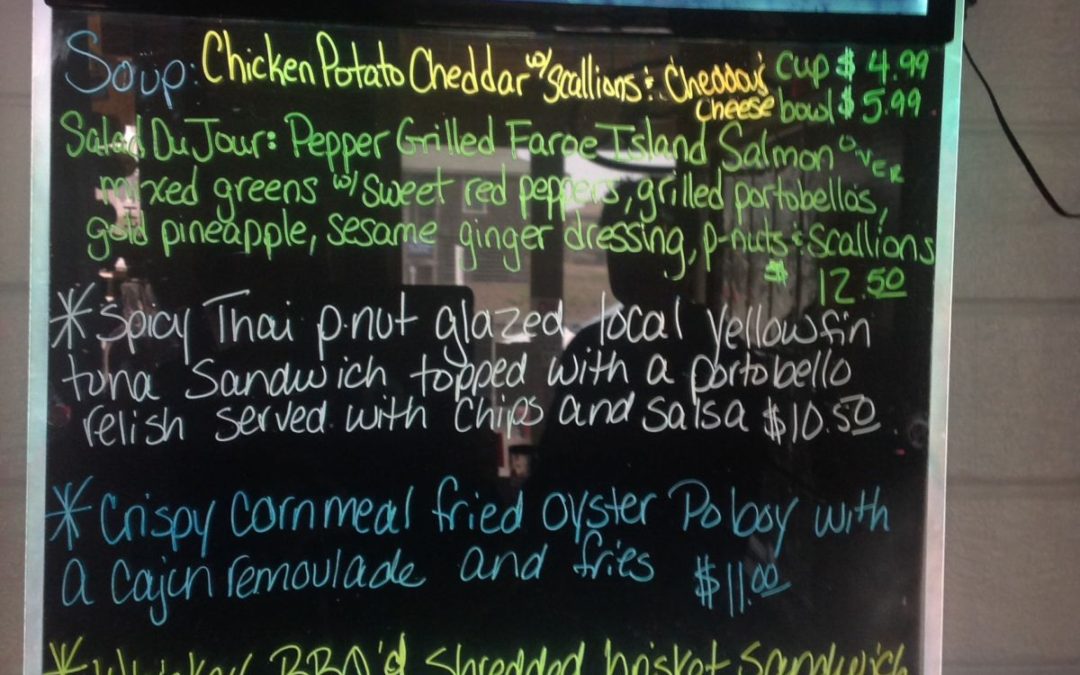 Soup: Chicken Potato Cheddar w/ scallions & Cheddar cup $ 4.99
cheese bowl $ 5.99
Salad Du Jour: Pepper Grilled Faroe Island Salmon OVER
mixed greens w/ sweet red peppers, grilled portobellos,
gold pineapple, sesame ginger dressing, p-nuts & scallions
$ 12.50
*Spicy Thai p-nut glazed local yellowfin
tuna Sandwich topped with a portobello
relish served with chips and salsa $10.50.
*Crispy cornmeal fried oyster Poboy with
a Cajun remoulade and fries $11.00
*Whiskey BBQ'd shredded brisket sandwich